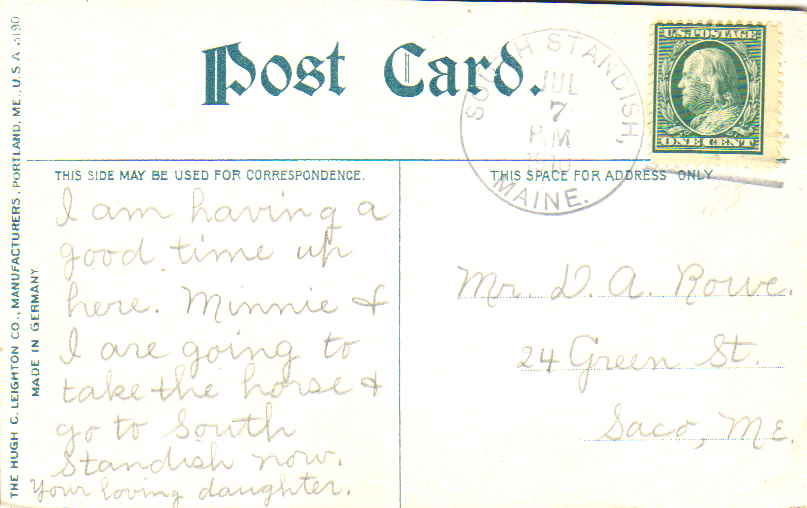 Post Card.
SOUTH STANDISH,
JUL
7
P.M
MAINE.
U.S. POSTAGE
ONE CENT
THE HUGH C. LEIGHTON CO., MANUFACTURERS, PORTLAND, ME., U.S.A.
MADE IN GERMANY
THIS SIDE MAY BE USED FOR CORRESPONDENCE.
I am having a
good time up
here. Minnie &
I are going to
take the horse &
go to South
Standish now.
Your loving daughter.
THIS SPACE FOR ADDRESS ONLY
Mr. D. A. Rowe.
24 Green St.
Saco, Me.